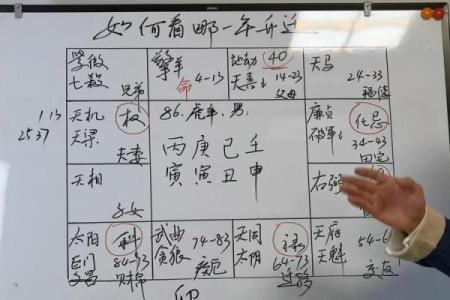 如何看哪一年升迁
七殺
兄弟
擎羊
命
4-13
地劫
40
天喜
14-23
父母
天马
24-33
福德
1 13
25 37
天机
权
天梁
夫妻
86. 虎年, 男:
丙庚己壬
寅寅丑申
廉贞
化忌
破軍
34-43
田宅
天相
子女
右弼
太阳
科
巨门
84-93
文昌
财帛
武曲
74-83
贪狼
疾厄
天同
禄
太阴
64-73
迁移
天府
54-6
天魁
交友